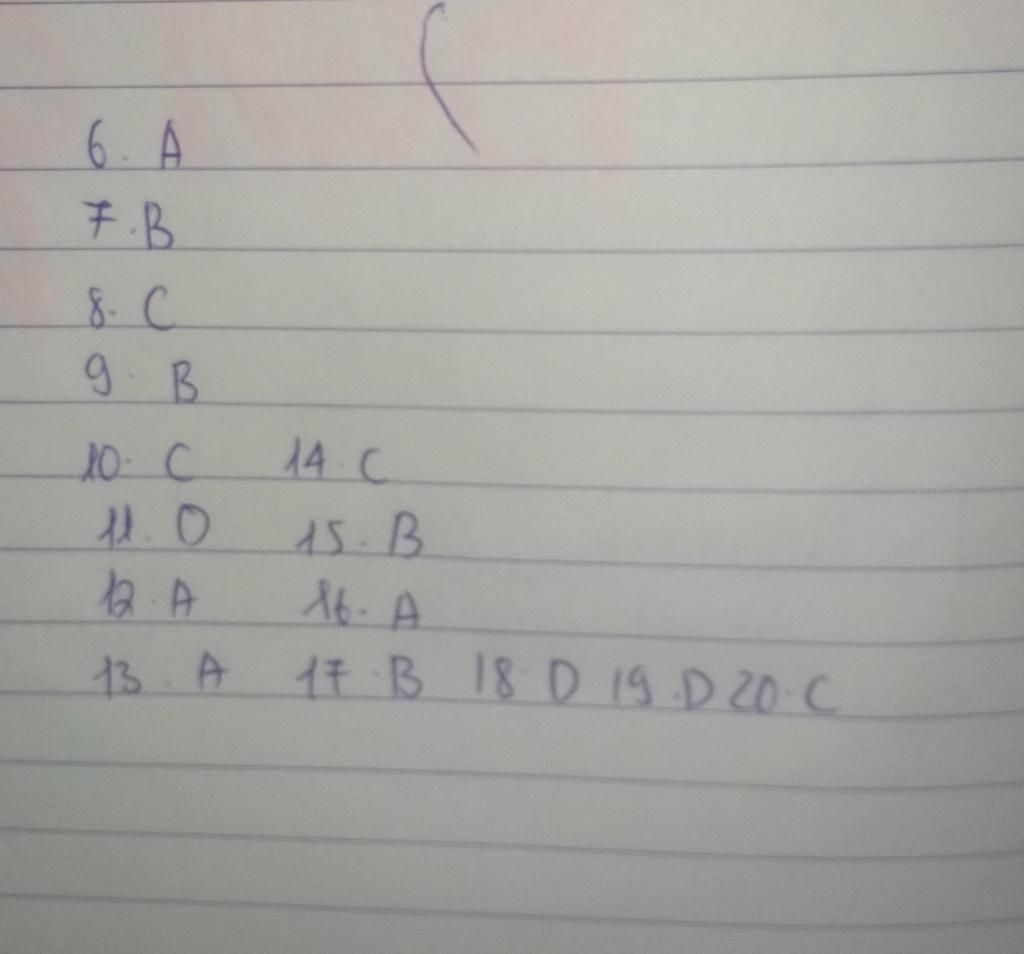 6. A
7. B
8. C
9. B
10. C 14. C
11. D 15. B
12. A 16. A
13. A 17. B 18 D 19. D 20. C